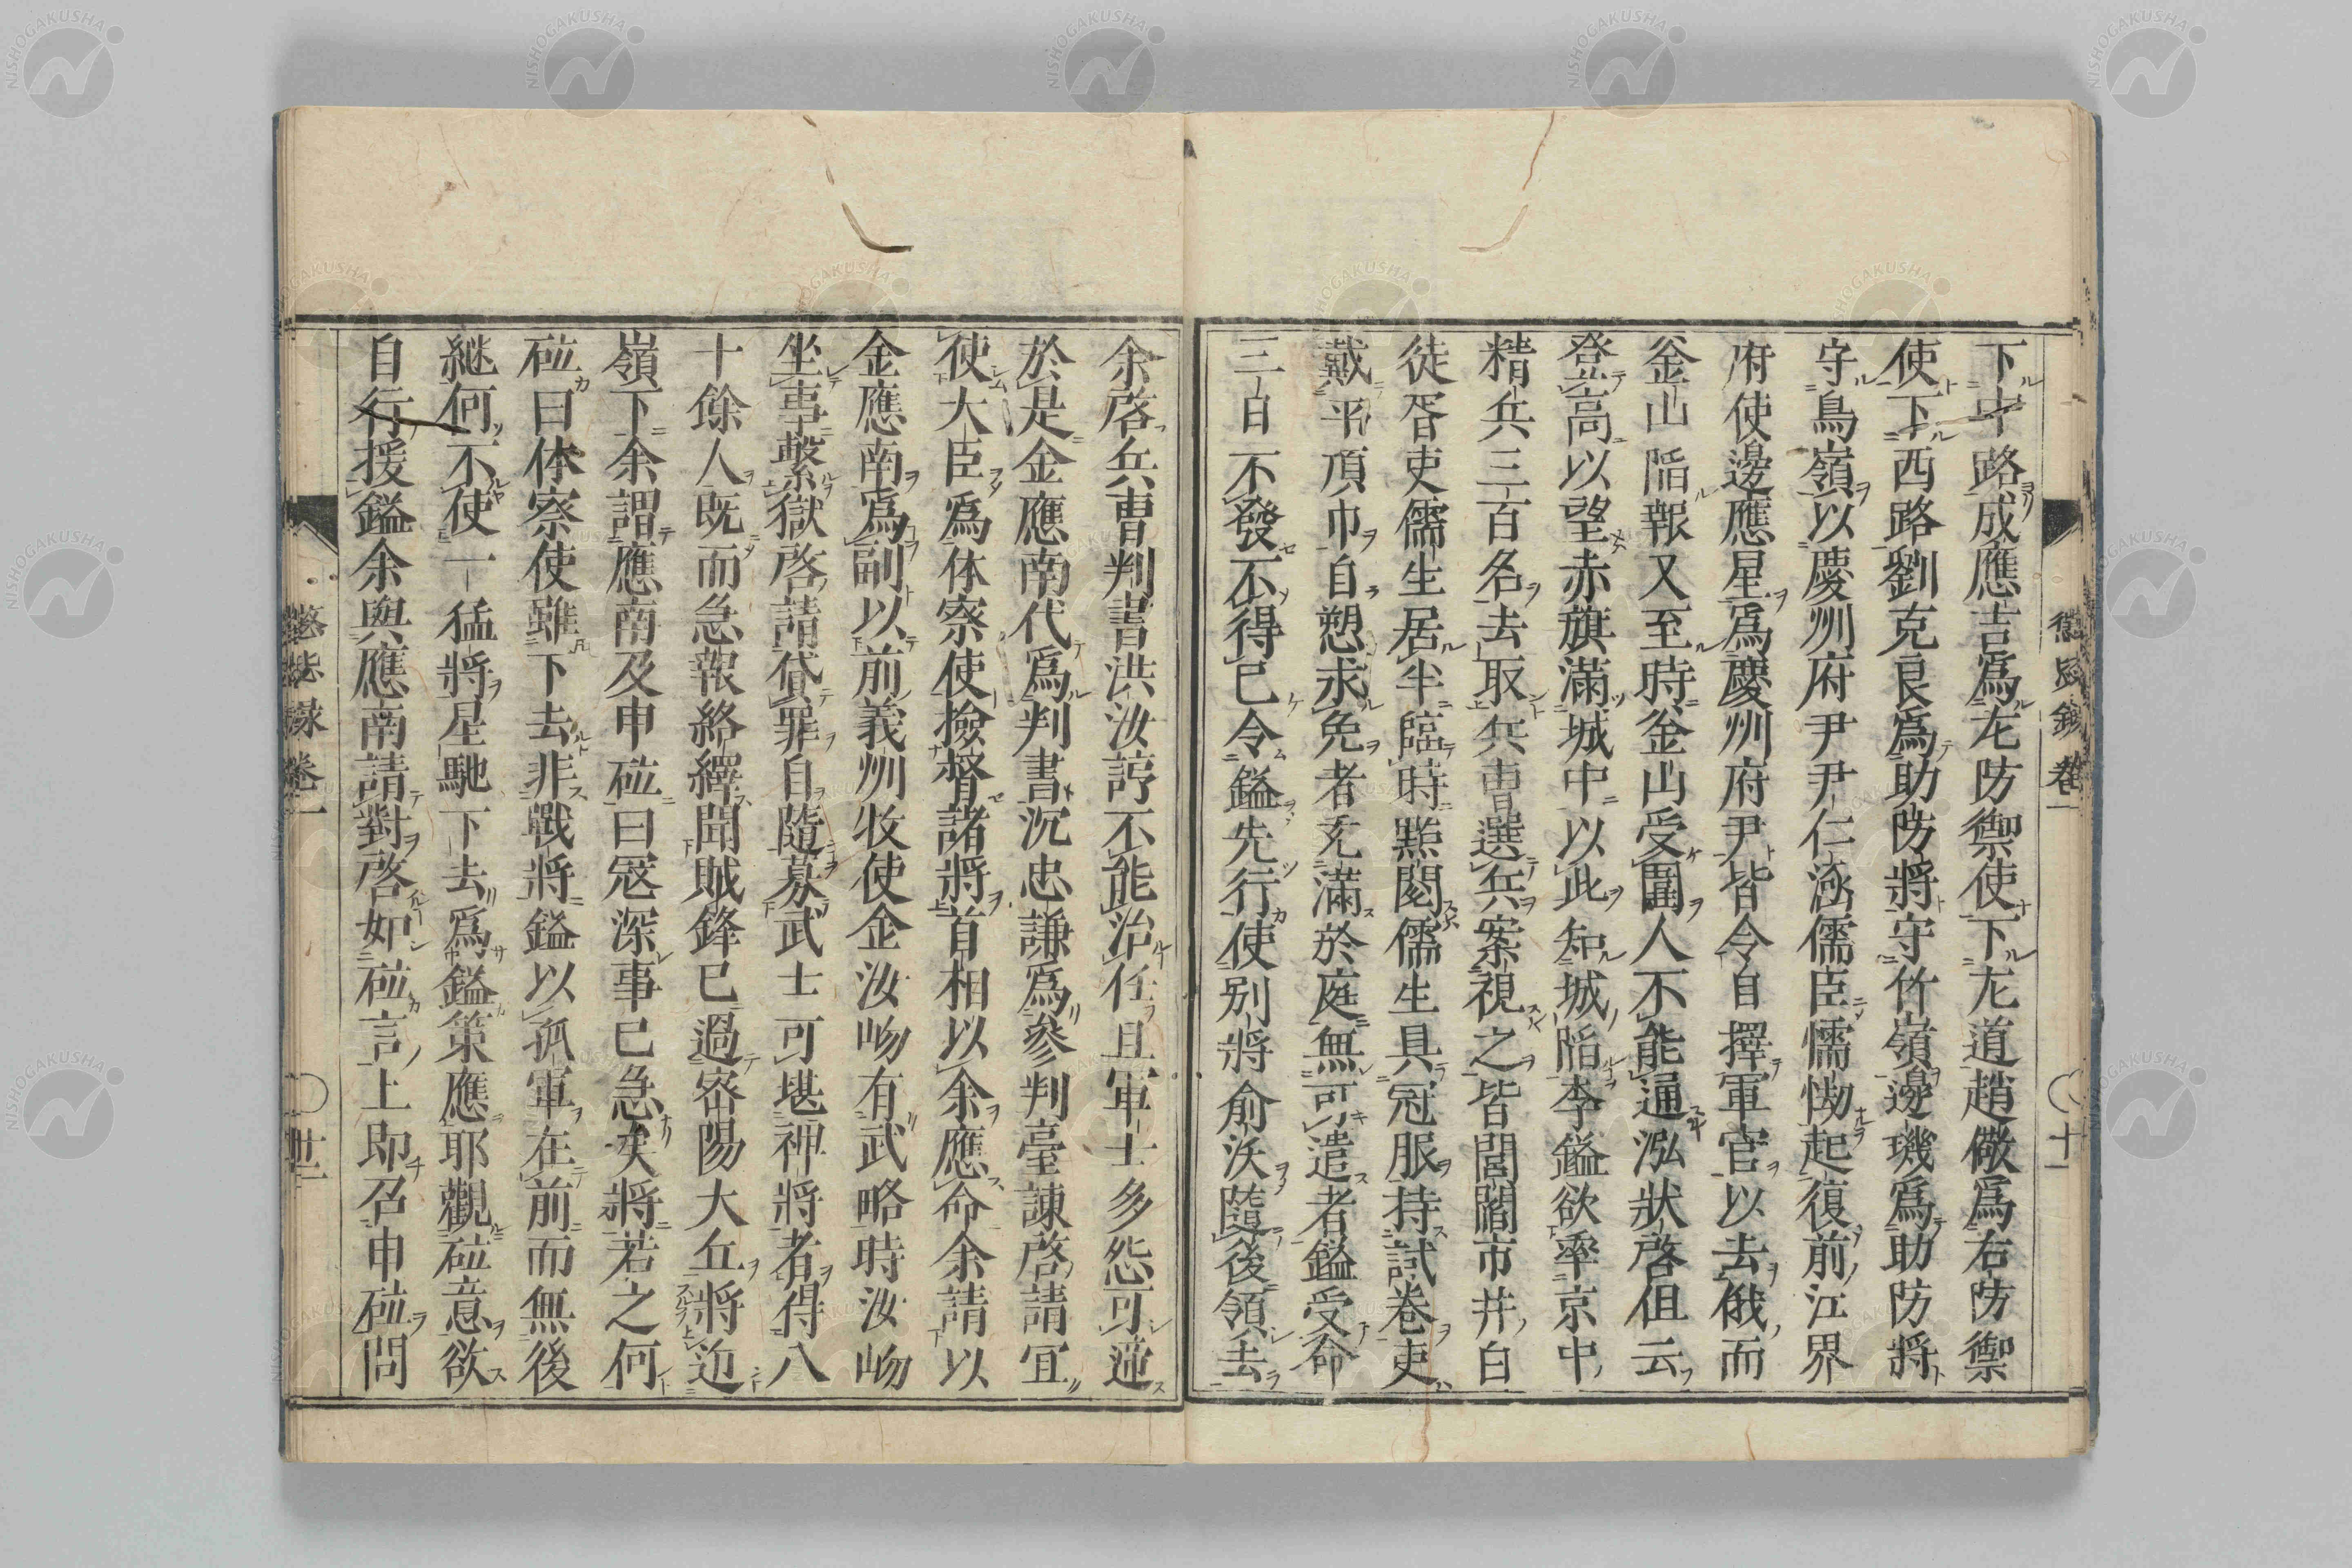 下中路成應吉爲左防禦使下左道趙儆爲右防禦
使下西路劉克良爲助防將守竹嶺邊璣爲助防將
守鳥嶺以慶州府尹尹仁涵儒臣懦㤼起復前江界
府使邊應星爲慶州府尹皆令自擇軍官以去俄而
釜山陷報又至時釜山受圍人不能通泓狀啓但云
登高以望赤旗滿城中以此知城陷李鎰欲率京中
精兵三百名去取兵曹選兵案視之皆閭閻市井白
徒胥吏儒生居半臨時點閱儒生具冠服持試卷吏
戴平頂巾自愬求免者充滿於庭無可遣者鎰受命
三日不發不得已令鎰先行使別將俞沃隨後領去
余啓兵曹判書洪汝諄不能治任且軍士多怨可遞
於是金應南代爲判書沉忠謙爲參判臺諫啓請宜
使大臣爲体察使撿督諸將首相以余應命余請以
金應南爲副以前義州牧使金汝岉有武略時汝岉
坐事繫獄啓請貸罪自隨募武士可堪神將者得八
十餘人既而急報絡繹聞賊鋒已過密陽大丘將迫
嶺下余謂應南及申砬曰寇深事已急矣將若之何
砬曰体察使雖下去非戰將鎰以孤軍在前而無後
継何不使一猛將星馳下去爲鎰策應耶觀砬意欲
自行援鎰余與應南請對啓如砬言上即召申砬問
懲毖録卷一
〇十一
懲毖録卷一
〇廿二
NISHOGAKUSHA